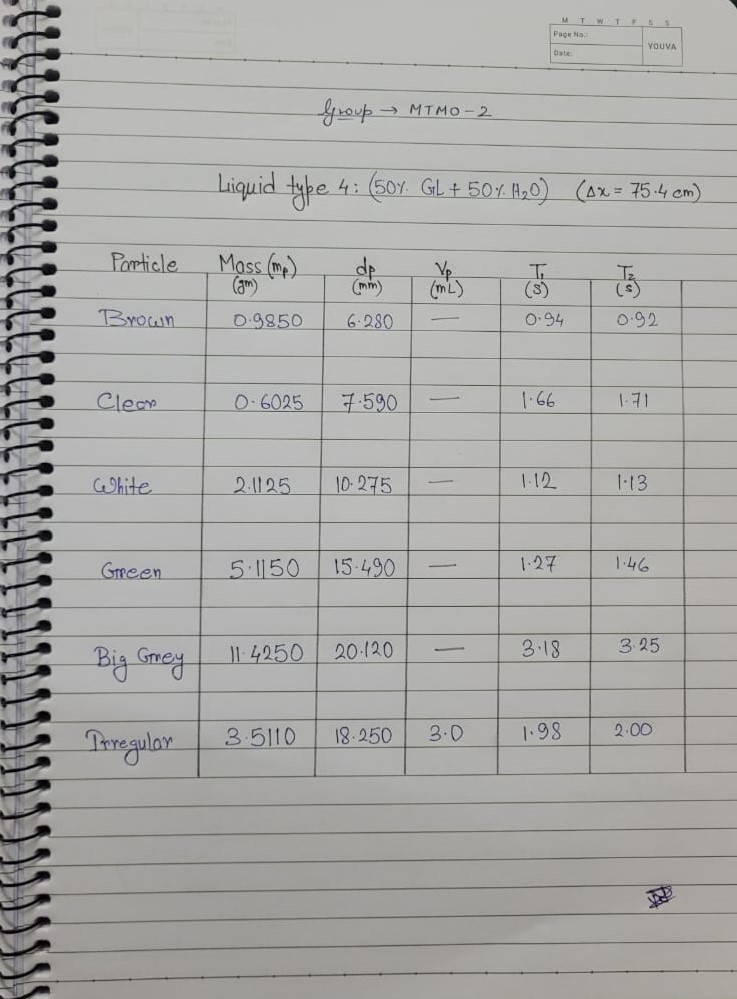 M T W T F S S
Page No.:
YOUVA
Date:
Group → MTMO-2
Liquid type 4: (50% GL + 50% H₂O) (Δx = 75.4 cm)
Particle Mass (mp) dp Vp T₁ T₂
(gm) (mm) (mL) (s) (s)
Brown 0.9850 6.280 — 0.94 0.92
Clear 0.6025 7.590 — 1.66 1.71
White 2.1125 10.275 — 1.12 1.13
Green 5.1150 15.490 — 1.27 1.46
Big Grey 11.4250 20.120 — 3.18 3.25
Irregular 3.5110 18.250 3.0 1.98 2.00